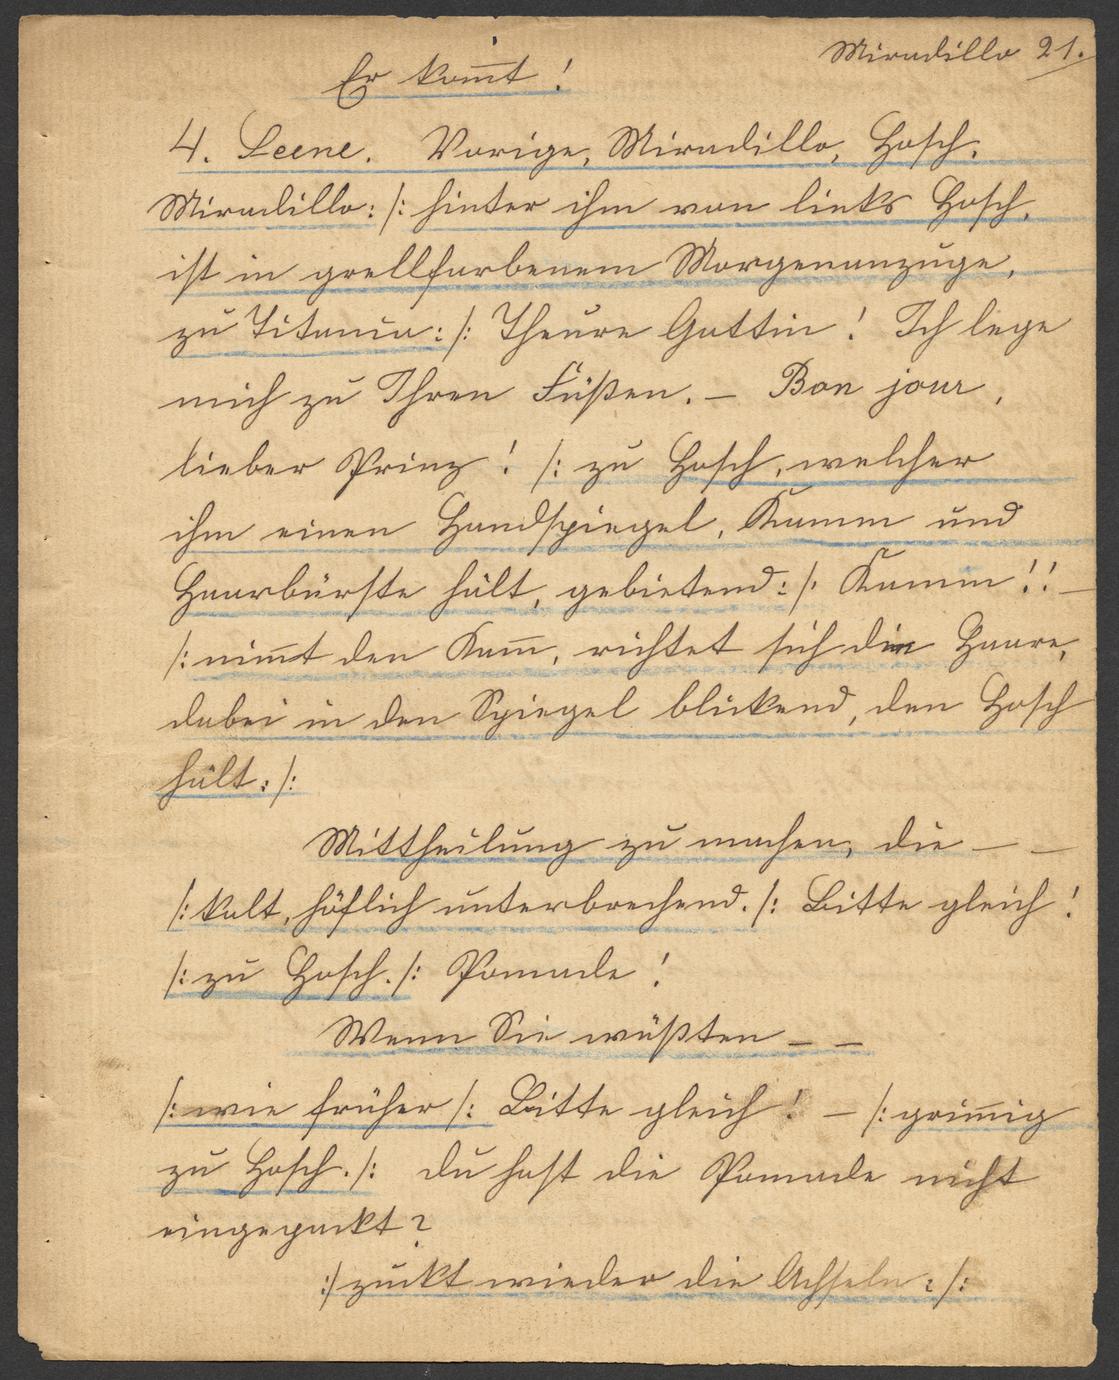 Miradillo 21.
Er kom̄t!
4. Scene. Vorige, Miradillo, Hosch.
Miradillo: /: hinter ihm von links Hosch,
ist in grellfarbenem Morgenanzuge,
zu Titania: /: Theure Gattin! Ich lege
mich zu Ihren Füßen. — Bon jour,
lieber Prinz! /: zu Hosch, welcher
ihm einen Handspiegel, Kamm und
Haarbürste hält, gebietend: /: Kamm!! —
/: nim̄t den Kam̄, richtet sich die Haare,
dabei in den Spiegel blickend, den Hosch
hält: /:
Mittheilung zu machen, die — —
/: kalt, höflich unterbrechend. /: Bitte gleich!
/: zu Hosch. /: Pomade!
Wenn Sie wüßten — —
/: wie früher /: Bitte gleich! — /: grim̄ig
zu Hosch. /: du hast die Pomade nicht
eingepackt?
:/ zuckt wieder die Achseln: /: